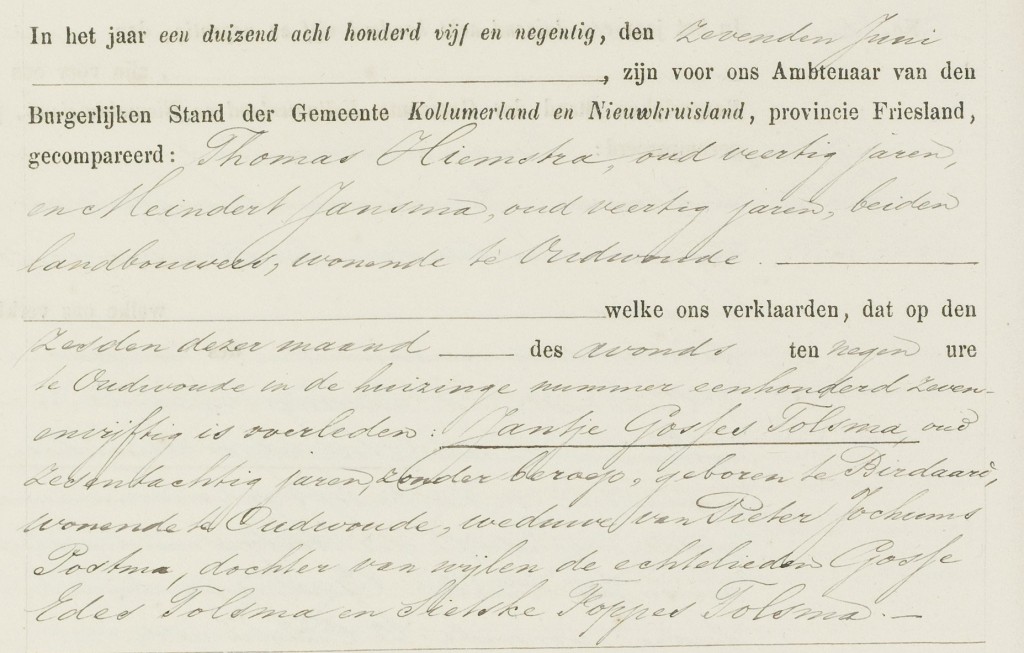 In het jaar een duizend acht honderd vijf en negentig, den Zevenden Juni
, zijn voor ons Ambtenaar van den
Burgerlijken Stand der Gemeente Kollumerland en Nieuwkruisland, provincie Friesland,
gecompareerd: Thomas Hiemstra, oud veertig jaren,
en Meindert Jansma, oud veertig jaren, beiden
landbouwers, wonende te Oudwoude.
welke ons verklaarden, dat op den
Zesden dezer maand des avonds ten negen ure
te Oudwoude in de huizinge nummer eenhonderd zeven-
envijftig is overleden: Jantje Gosses Tolsma, oud
zesentachtig jaren, zonder beroep, geboren te Birdaard,
wonende te Oudwoude, weduwe van Pieter Jochums
Postma, dochter van wijlen de echtelieden Gosse
Edes Tolsma en Sietske Foppes Tolsma.